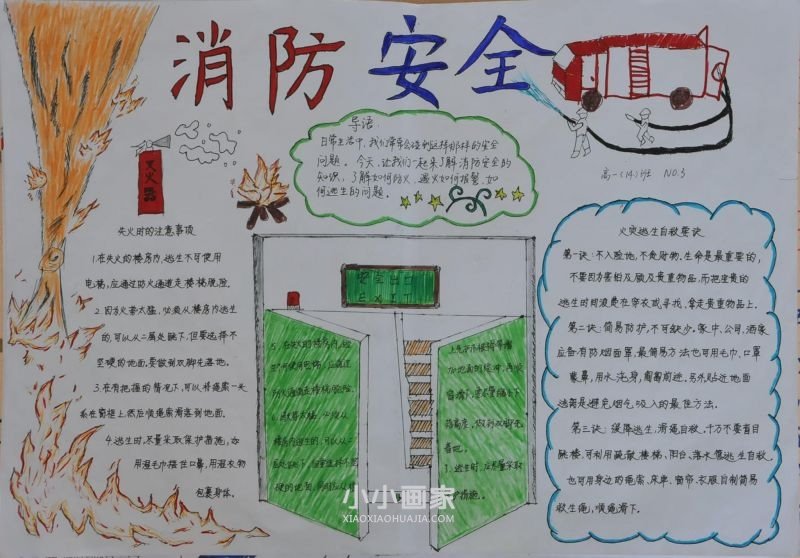 消防安全
导语:
日常生活中,我们常常会碰到这样那样的安全
问题。今天,让我们一起来了解消防安全的
知识,了解如何防火、遇火如何报警、如
何逃生的问题。
高一(14)班 NO.3
灭火器
失火时的注意事项
1.在失火的楼房内,逃生不可使用
电梯,应通过防火通道走楼梯脱险.
2.因为火势太猛,必须从楼房内逃生
的,可以从二层处跳下,但要选择不
坚硬的地面,要做到双脚先落地。
3.在有把握的情况下,可以将绳索一头
系在窗框上,然后顺绳索滑落到地面.
4.逃生时,尽量采取保护措施,如
用湿毛巾捂住口鼻,用湿衣物
包裹身体。
安全出口
EXIT
火灾逃生自救要诀
第一诀:不入险地,不贪财物.生命是最重要的,
不要因为害怕及顾及贵重物品,而把宝贵的
逃生时间浪费在穿衣或寻找、拿走贵重物品上.
第二诀:简易防护,不可缺少.家中、公司、酒家
应备有防烟面罩,最简易方法也可用毛巾、口罩
蒙鼻,用水浇身,匍匐前进.另外贴近地面
逃离是避免烟气吸入的最佳方法.
第三诀:缓降逃生,滑绳自救.千万不要盲目
跳楼,可利用疏散楼梯、阳台、落水管逃生自救.
也可用身边的绳索、床单、窗帘、衣服自制简易
救生绳,顺绳滑下.
小小画家
XIAOXIAOHUAJIA.COM